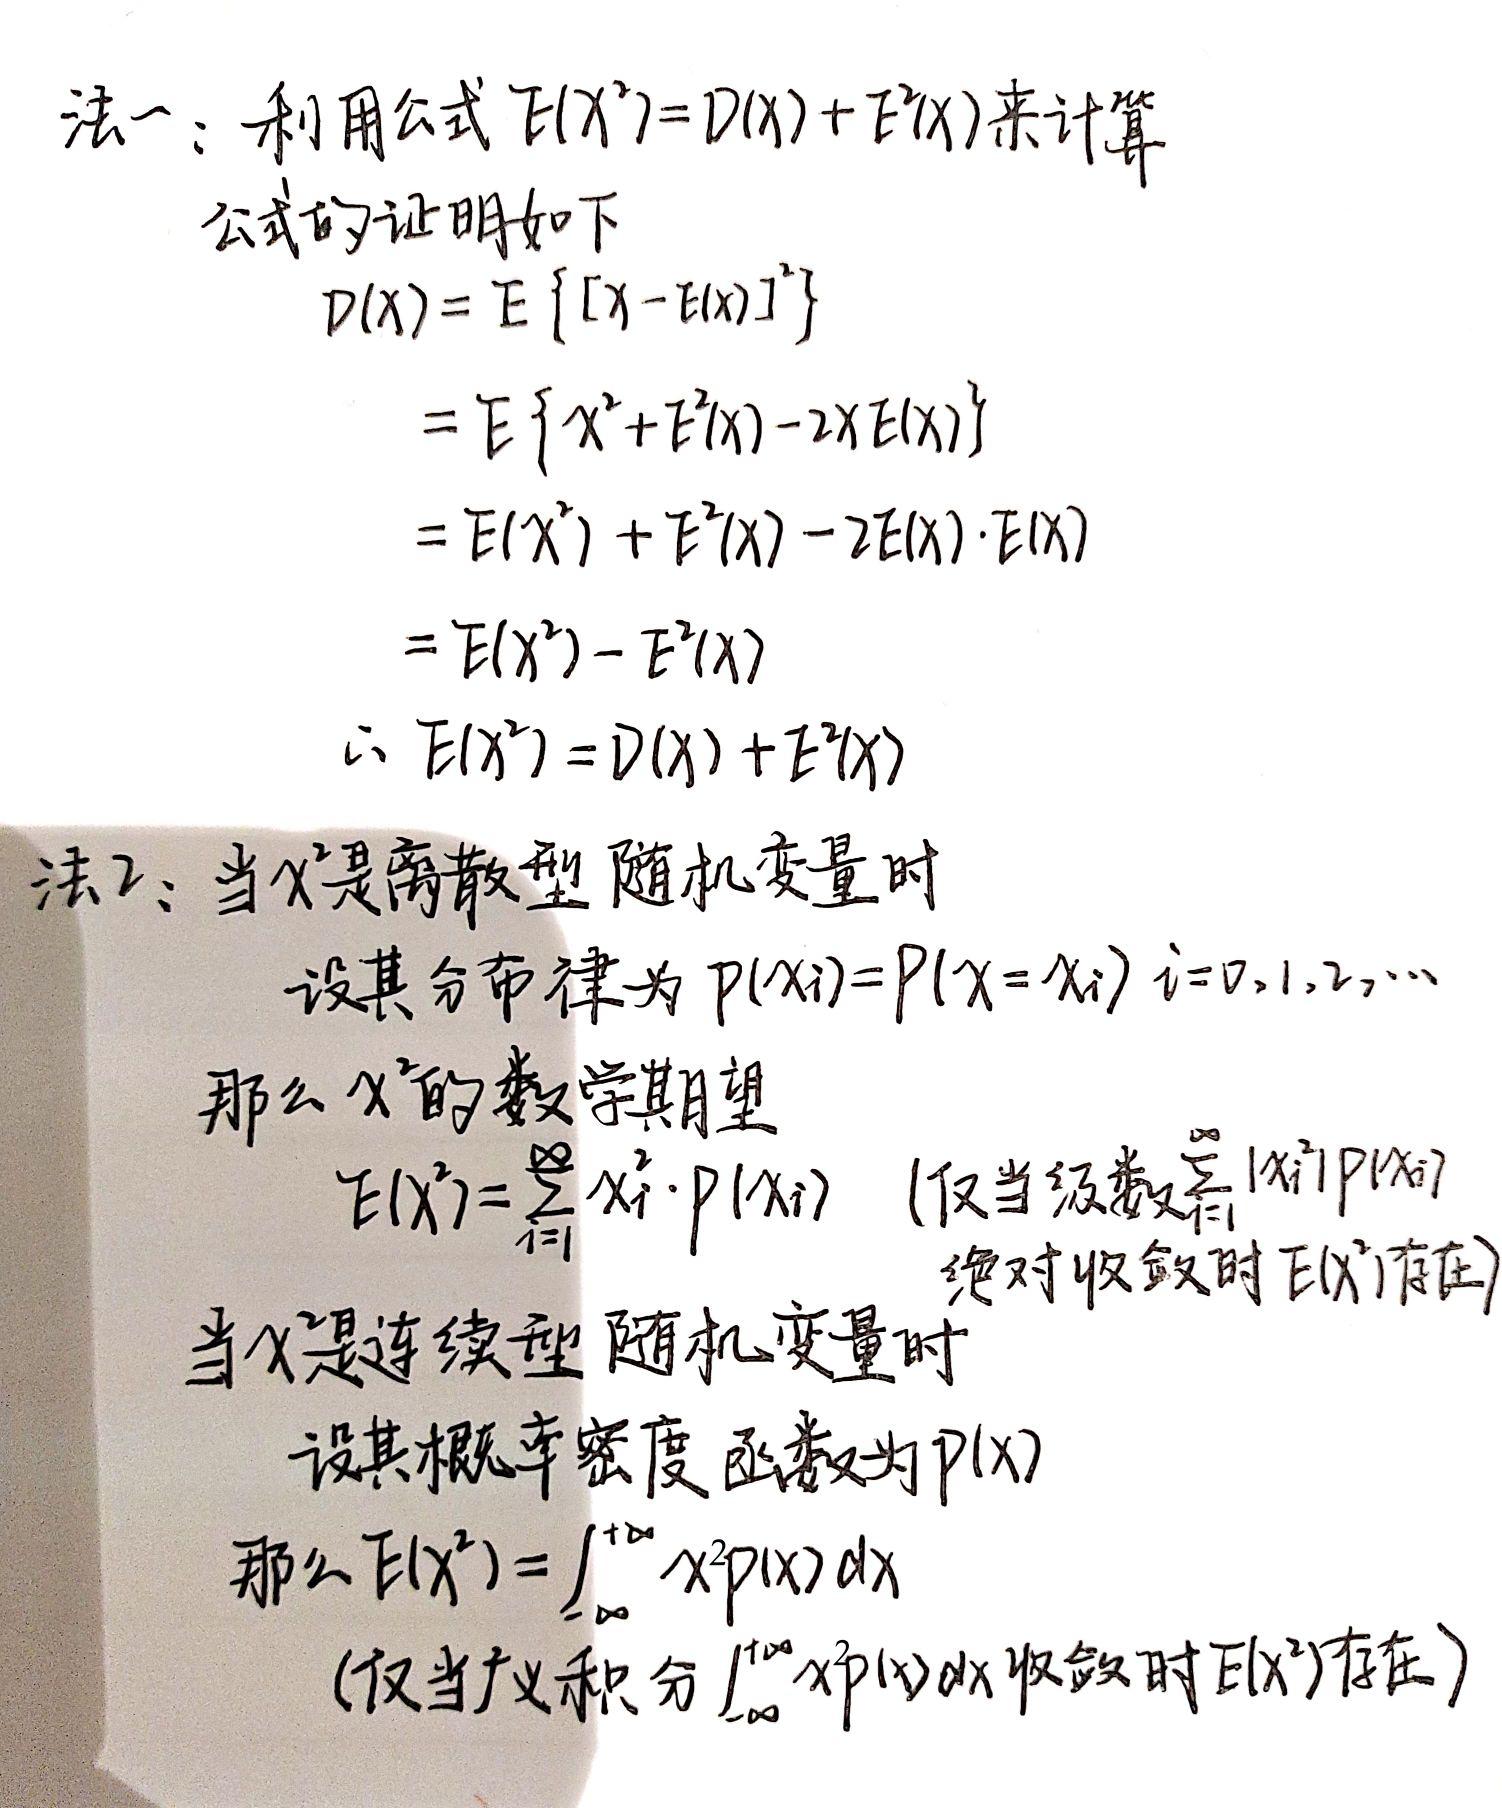 法一：利用公式 E(X²)=D(X)+E²(X)来计算
公式的证明如下
D(X)=E{[X-E(X)]²}
=E{X²+E²(X)-2XE(X)}
=E(X²)+E²(X)-2E(X)·E(X)
=E(X²)-E²(X)
∴ E(X²)=D(X)+E²(X)
法2：当X²是离散型随机变量时
设其分布律为 p(xi)=P(X=xi) i=0,1,2,…
那么X²的数学期望
E(X²)=∑_{i=1}^{∞} xi²·p(xi) (仅当级数∑_{i=1}^{∞}|xi²|p(xi)
绝对收敛时E(X²)存在)
当X²是连续型随机变量时
设其概率密度函数为p(x)
那么E(X²)=∫_{-∞}^{+∞} x²p(x)dx
(仅当广义积分∫_{-∞}^{+∞}x²p(x)dx收敛时E(X²)存在)